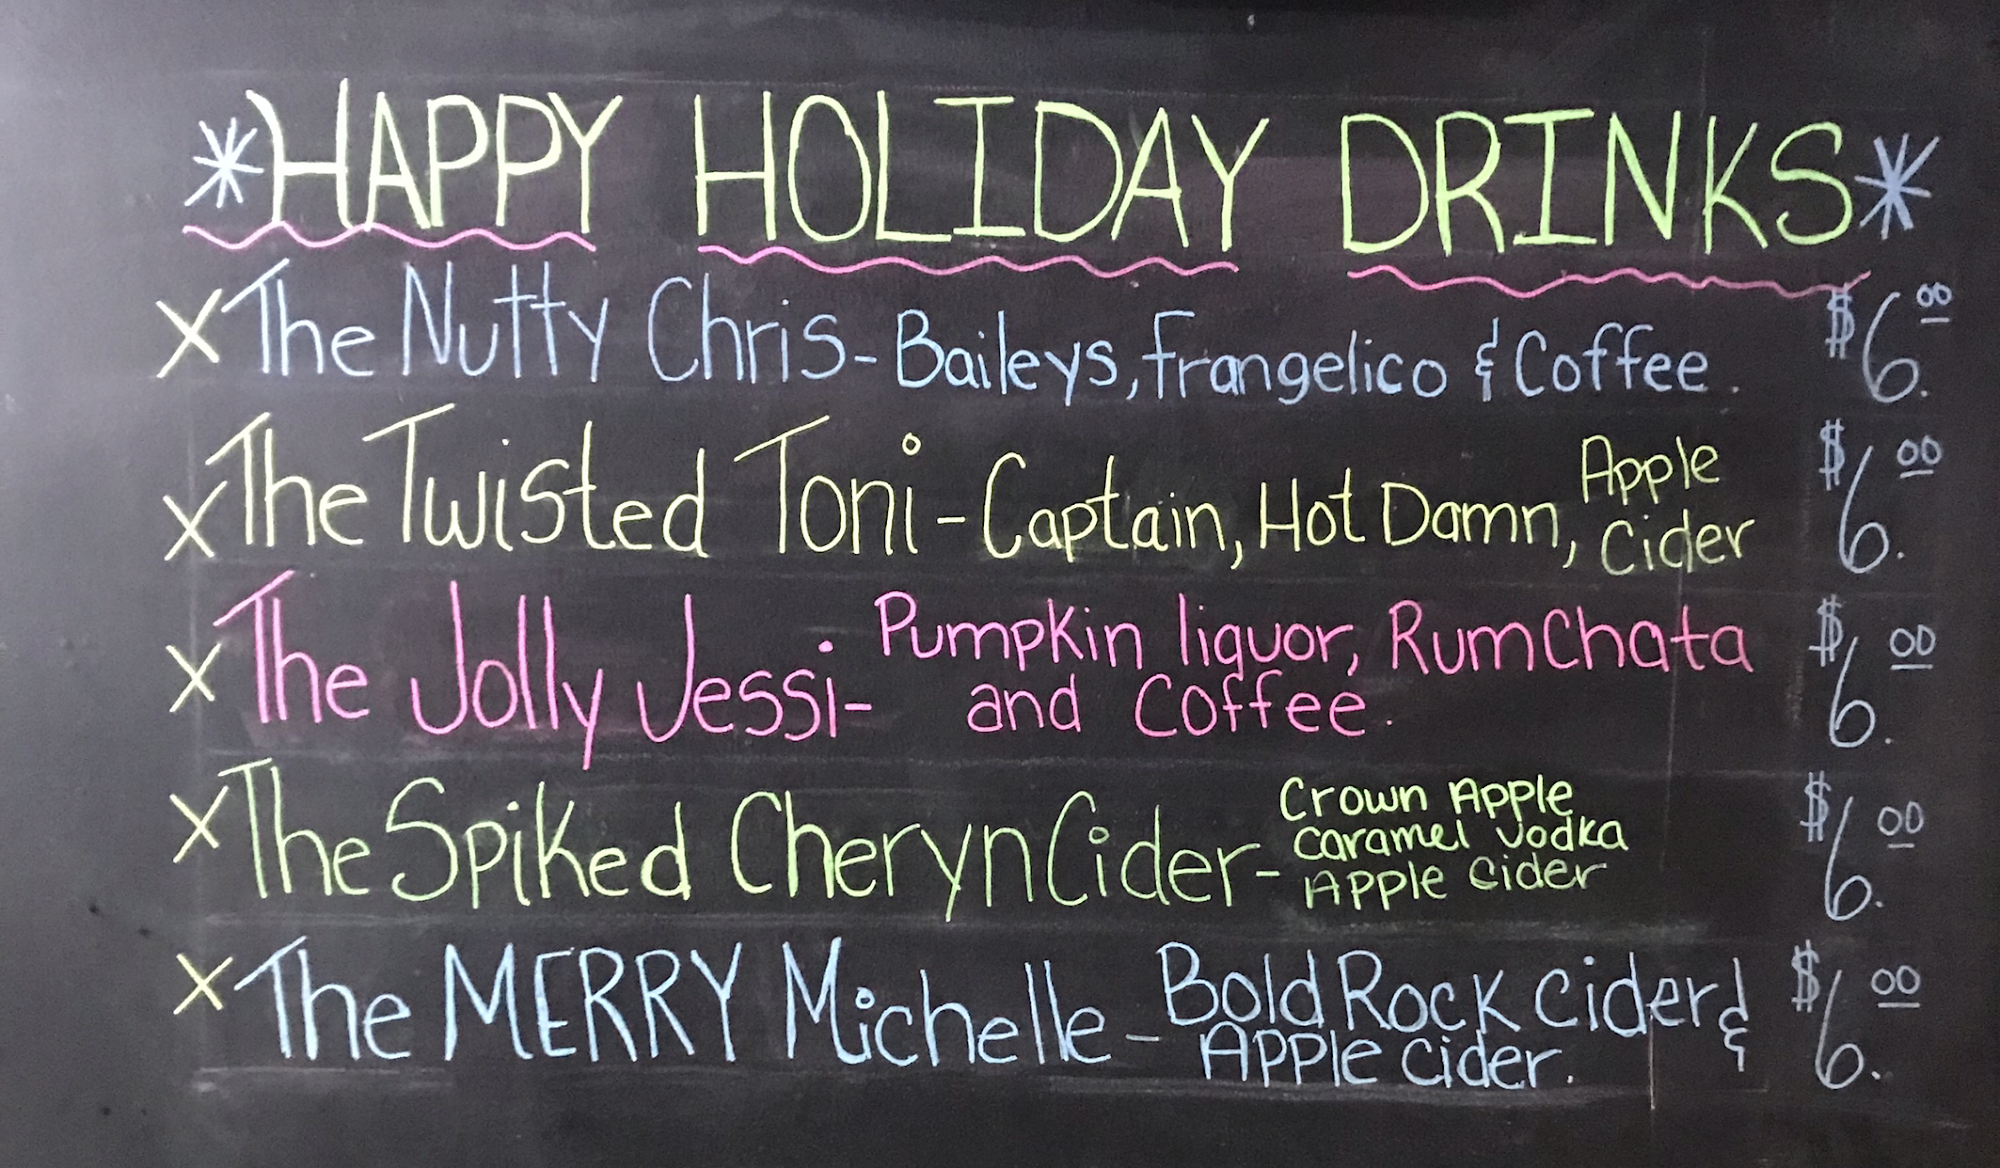 *HAPPY HOLIDAY DRINKS*
X The Nutty Chris - Baileys, Frangelico & Coffee. $6.00
X The Twisted Toni - Captain, Hot Damn, Apple Cider $6.00
X The Jolly Jessi - Pumpkin liquor, RumChata
and Coffee. $6.00
X The Spiked Cheryn Cider - Crown Apple
Caramel Vodka
Apple Cider $6.00
X The MERRY Michelle - Bold Rock Cider &
Apple Cider. $6.00